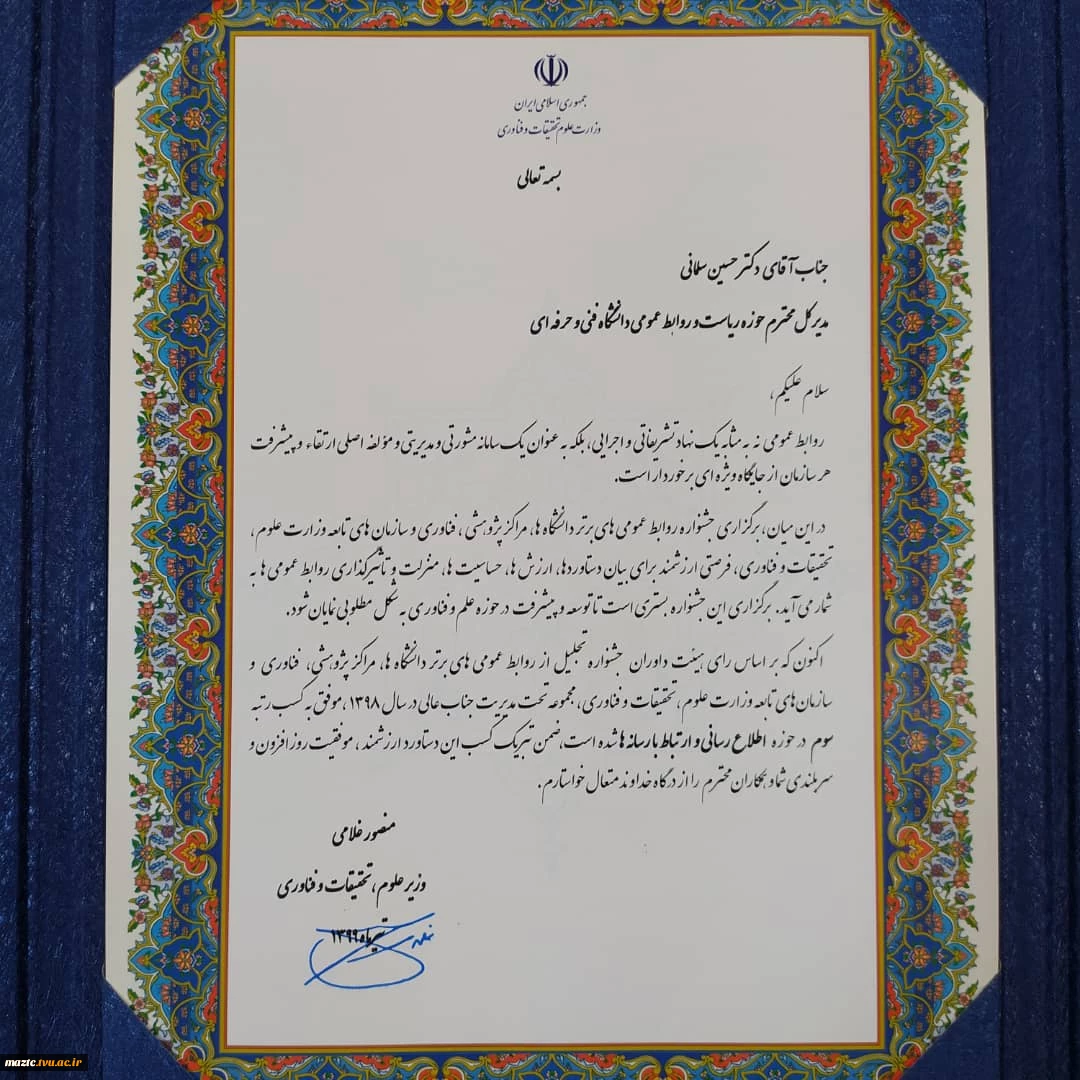 جمهوری اسلامی ایران
وزارت علوم تحقیقات و فناوری
بسمه تعالی
جناب آقای دکتر حسین سلمانی
مدیر کل محترم حوزه ریاست و روابط عمومی دانشگاه فنی و حرفه ای
سلام علیکم،
روابط عمومی نه به مثابه یک نهاد تشریفاتی و اجرایی، بلکه به عنوان یک سامانه مشورتی و مدیریتی و مؤلفه اصلی ارتقاء و پیشرفت
هر سازمان از جایگاه ویژه ای برخوردار است.
در این میان، برگزاری جشنواره روابط عمومی های برتر دانشگاه ها، مراکز پژوهشی، فناوری و سازمان های تابعه وزارت علوم،
تحقیقات و فناوری، فرصتی ارزشمند برای بیان دستاوردها، ارزش ها، حساسیت ها، منزلت و تأثیرگذاری روابط عمومی ها به
شمار می آید. برگزاری این جشنواره بستری است تا توسعه و پیشرفت در حوزه علم و فناوری به شکل مطلوبی نمایان شود.
اکنون که بر اساس رای هیئت داوران جشنواره تجلیل از روابط عمومی های برتر دانشگاه ها، مراکز پژوهشی، فناوری و
سازمان های تابعه وزارت علوم، تحقیقات و فناوری، مجموعه تحت مدیریت جناب عالی در سال ۱۳۹۸، موفق به کسب رتبه
سوم در حوزه اطلاع رسانی و ارتباط با رسانه ها شده است، ضمن تبریک کسب این دستاورد ارزشمند، موفقیت روزافزون و
سربلندی شما و همکاران محترم را از درگاه خداوند متعال خواستارم.
منصور غلامی
وزیر علوم، تحقیقات و فناوری
تیرماه ۱۳۹۹
maztc.tvu.ac.ir